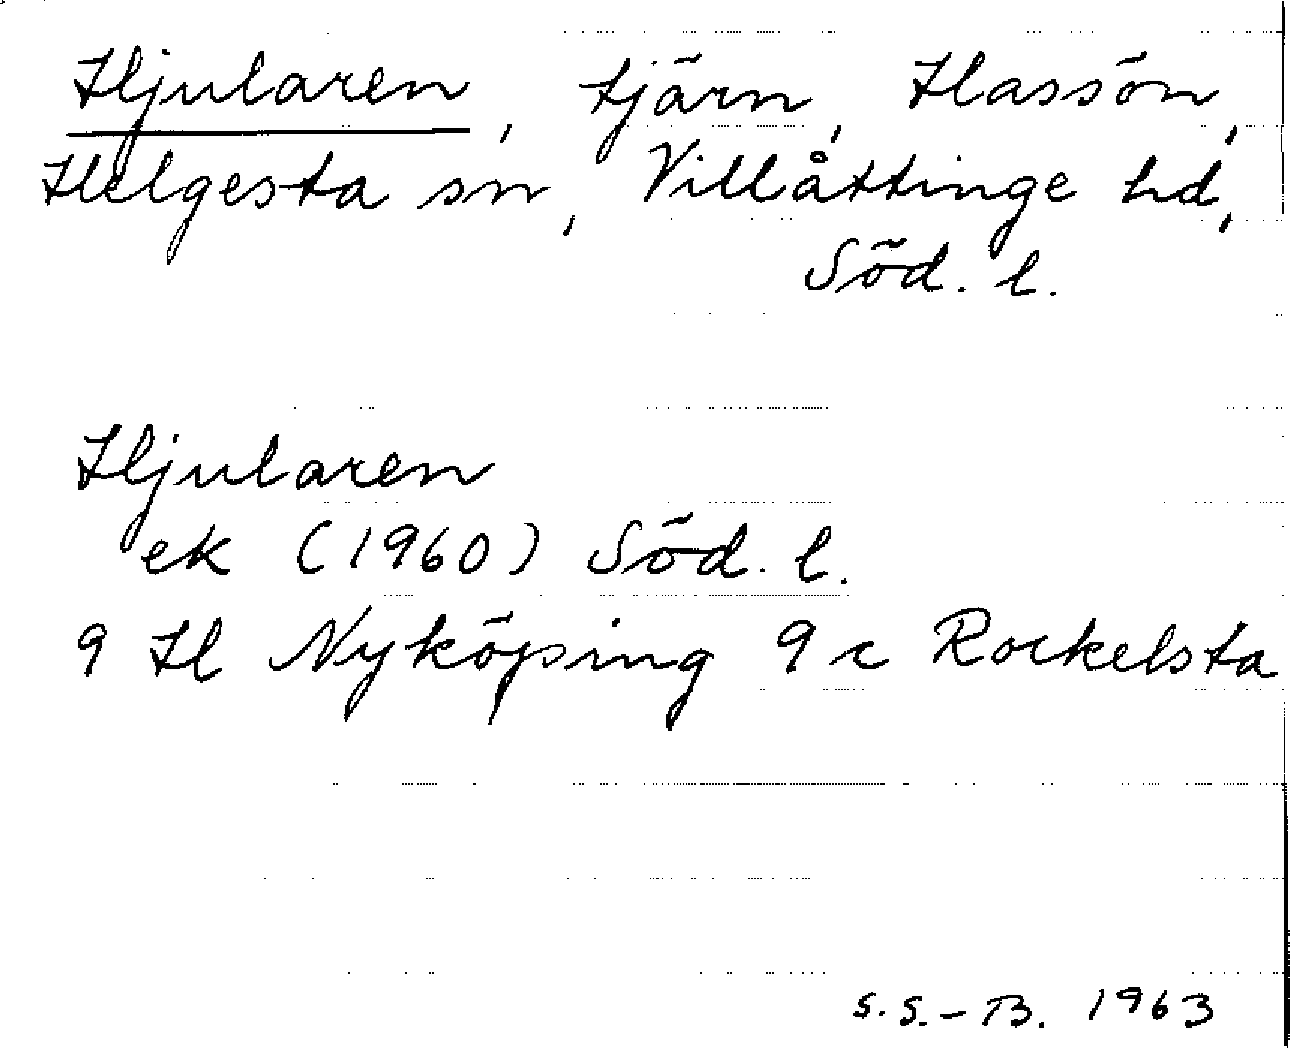 Hjularen, tjärn, Hassön,
Helgesta sn, Villåttinge hd,
Söd. l.
Hjularen
ek (1960) Söd. l.
9 H Nyköping 9 c Rockelsta
S.S.-B. 1963